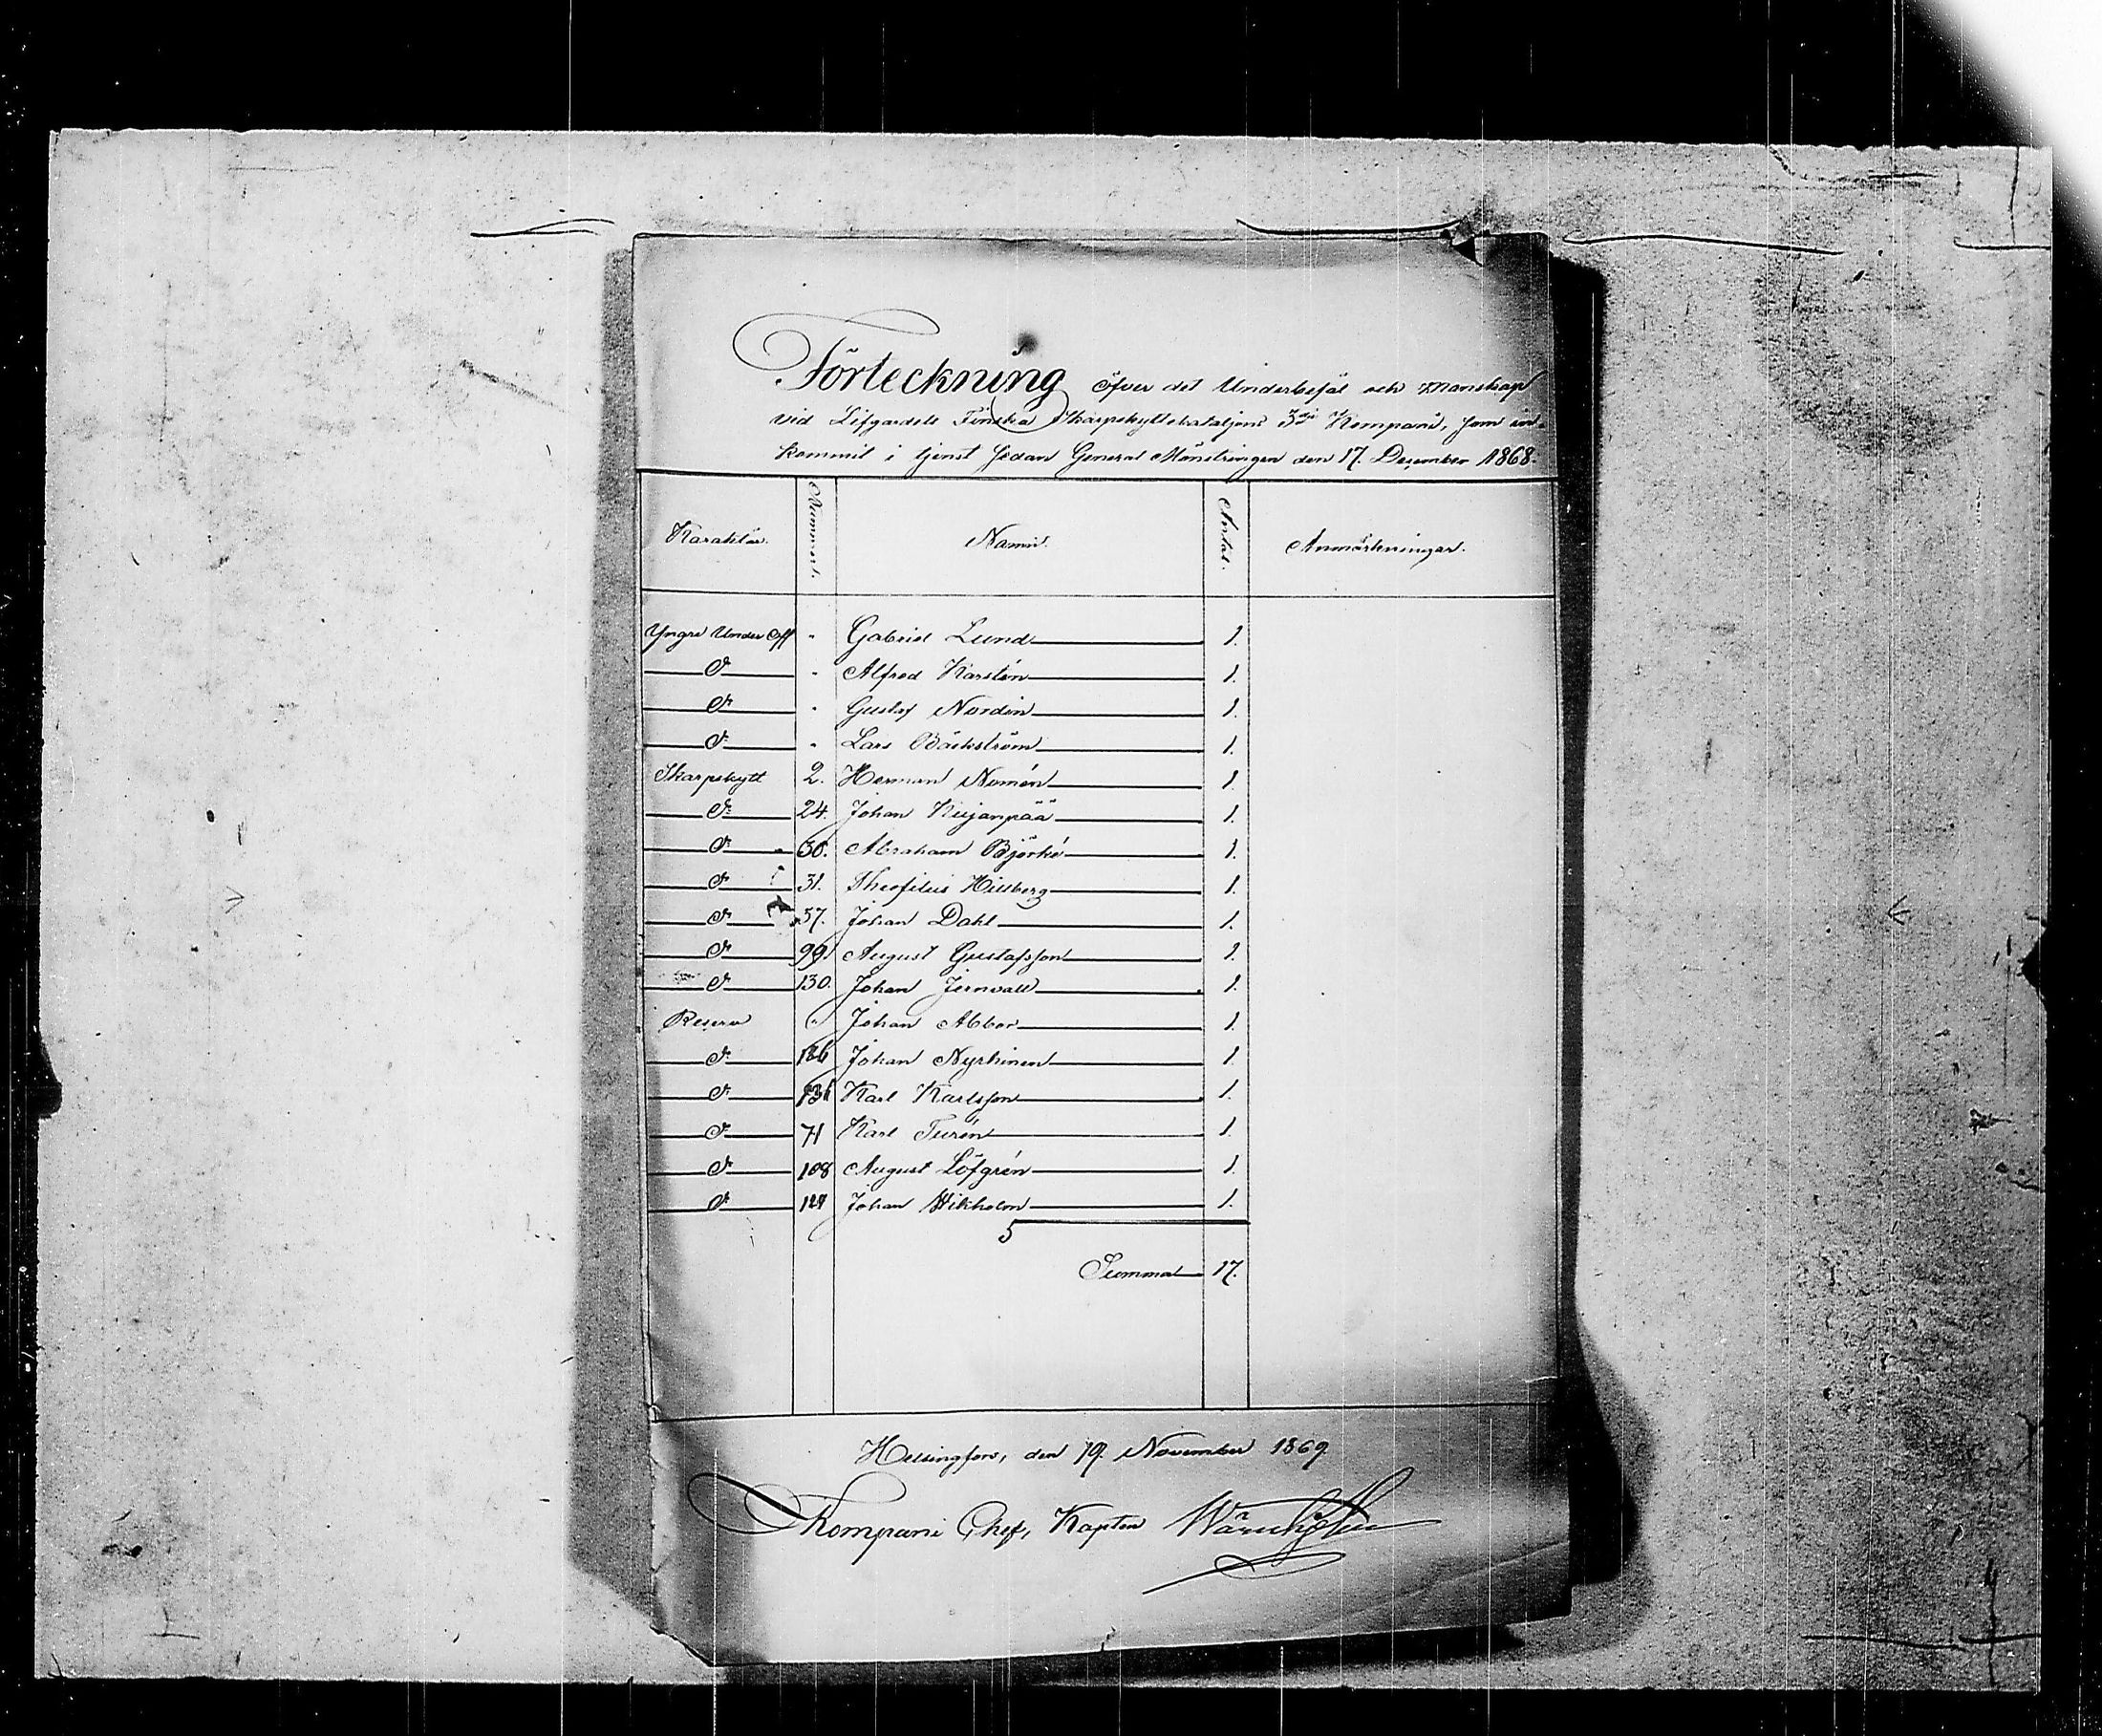 Förteckning öfver det Underbefäl och Manskap
vid Lifgardets Finska Skarpskyttebataljons 3dje Kompani, som in-
kommit i tjenst sedan General Mönstringen den 17. December 1868.
Karaktär. Nummer. Namn. Antal. Anmärkningar.
Yngre Under Off " Gabriel Lund 1.
D: " Alfred Karstén 1.
D: " Gustaf Nordin 1.
D: " Lars Bäckström 1.
Skarpskytt 2. Herman Nomén 1.
D: 24. Johan Kujanpää 1.
D: 30. Abraham Björké 1.
D: 31. Theofilus Hillberg 1.
D: 57. Johan Dahl 1.
D: 99. August Gustafsson 1.
D: 130. Johan Jernvall 1.
Reserv " Johan Abbor 1.
D: Johan Nyrhinen 1.
D: Karl Karlsson 1.
D: 71 Karl Turén 1.
D: 108 August Löfgrén 1.
D: Johan Wikholm 1.
5
Summa 17.
Helsingfors, den 19. November 1869
Kompani Chef, Kapten